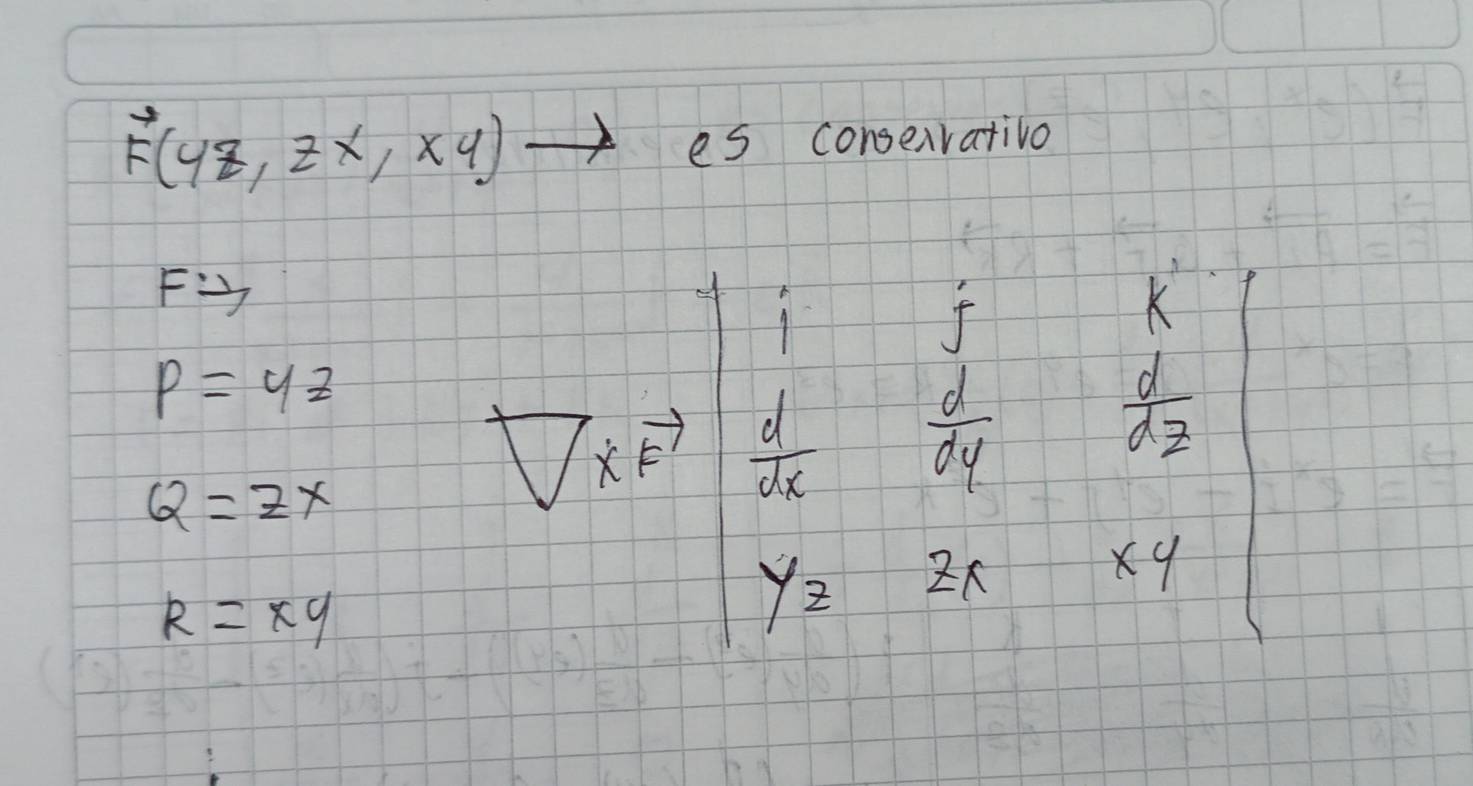 F⃗(yz, zx, xy) → es conservativo
F⇒
P = yz
Q = zx
R = xy
∇ x F⃗
| i j K |
| d/dx d/dy d/dz |
| yz zx xy |